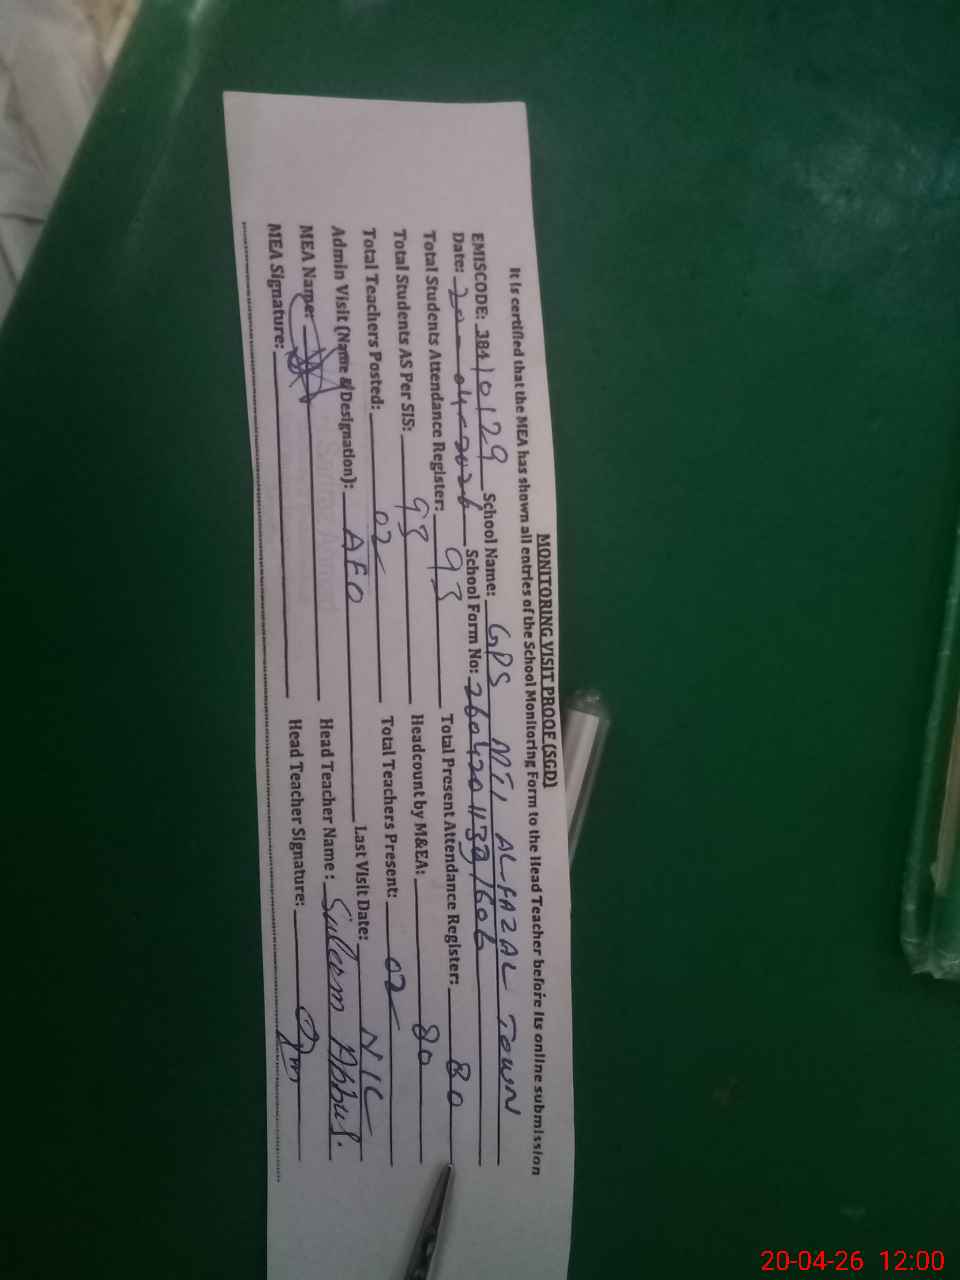 MONITORING VISIT PROOF (SGD)
It is certified that the MEA has shown all entries of the School Monitoring Form to the Head Teacher before its online submission
EMISCODE: 38410129 School Name: GPS AL-FAZAL TOWN
Date: 20-04-2026 School Form No:
Total Students Attendance Register: 93 Total Present Attendance Register: 80
Total Students AS Per SIS: 93 Headcount by M&EA: 80
Total Teachers Posted: 02 Total Teachers Present: 02
Admin Visit (Name & Designation): AEO Last Visit Date: NIL
MEA Name: Head Teacher Name: Saleem Abbas.
MEA Signature: Head Teacher Signature:
20-04-26 12:00